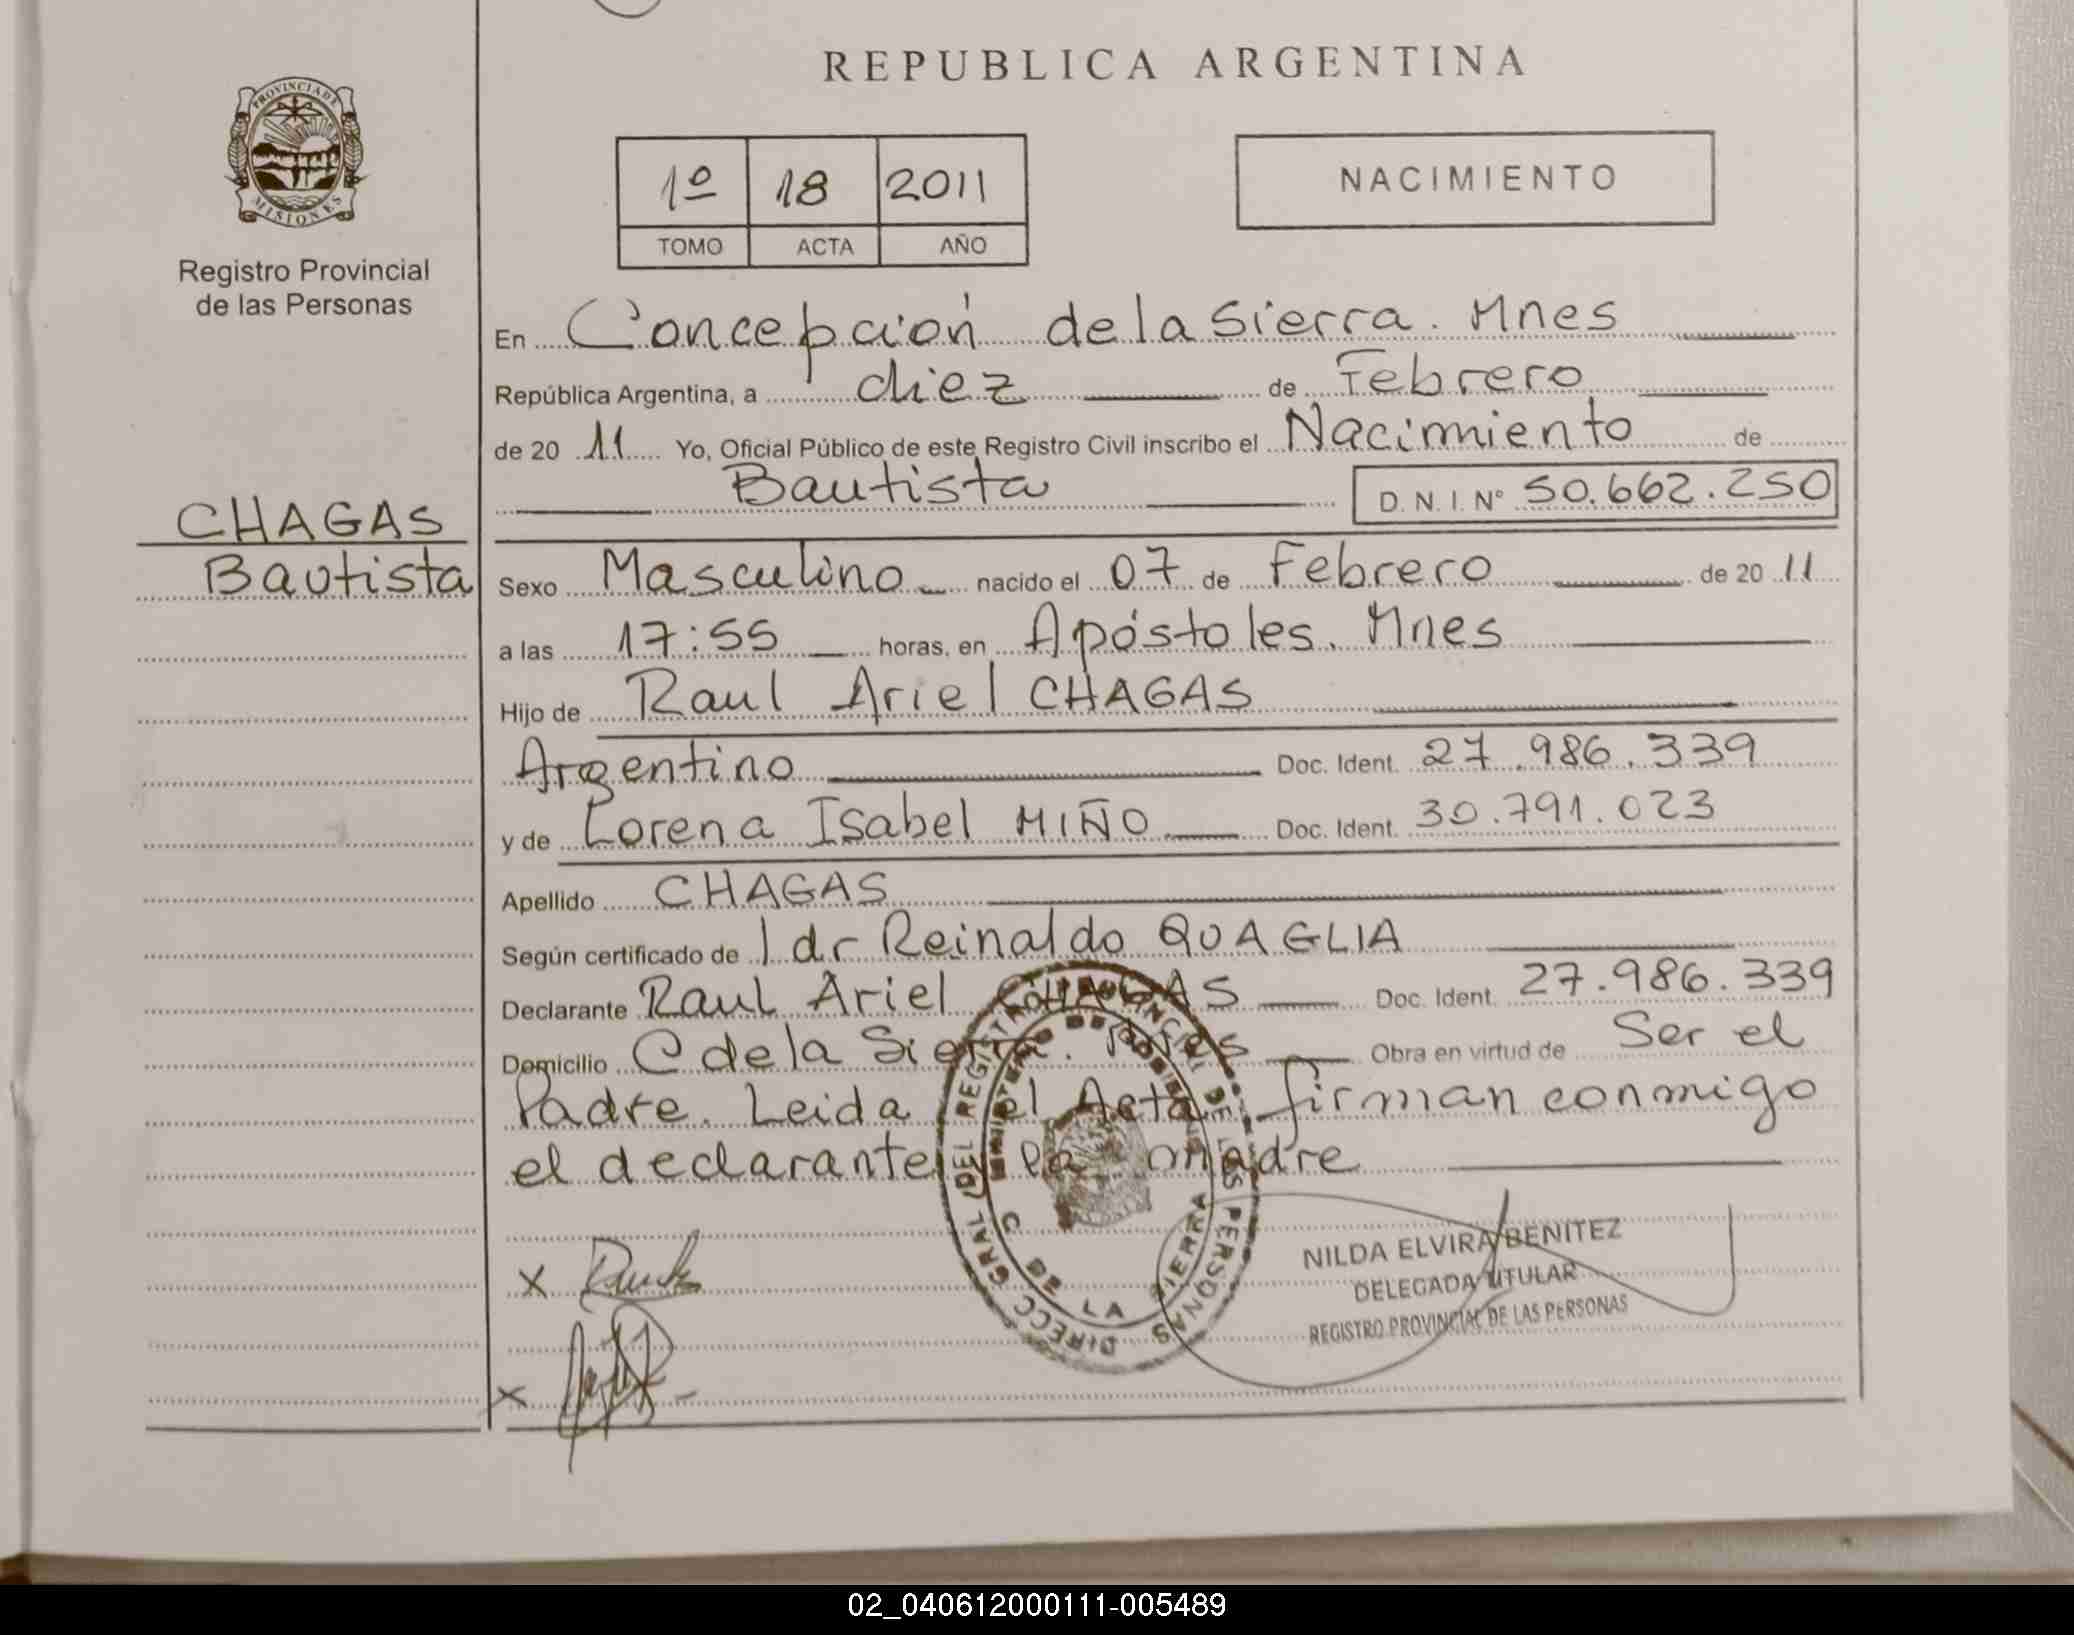 REPUBLICA ARGENTINA
PROVINCIA DE
MISIONES
Registro Provincial
de las Personas
1º 18 2011
TOMO ACTA AÑO
NACIMIENTO
En Concepción de la Sierra. Mnes
República Argentina, a diez de Febrero
de 20 11 Yo, Oficial Público de este Registro Civil inscribo el Nacimiento de
Bautista D. N. I. Nº 50.662.250
CHAGAS
Bautista
Sexo Masculino nacido el 07 de Febrero de 20 11
a las 17:55 horas, en Apóstoles. Mnes
Hijo de Raul Ariel CHAGAS
Argentino Doc. Ident. 27.986.339
y de Lorena Isabel MIÑO Doc. Ident. 30.791.023
Apellido CHAGAS
Según certificado de l dr Reinaldo QUAGLIA
Declarante Raul Ariel CHAGAS Doc. Ident. 27.986.339
Domicilio C de la Sierra. Mnes Obra en virtud de Ser el
Padre. Leida el Acta firman conmigo
el declarante y la madre
DIRECC. GRAL. DEL REGISTRO PROVINCIAL DE LAS PERSONAS
MINISTERIO DE GOBIERNO
C DE LA SIERRA
X
X
NILDA ELVIRA BENITEZ
DELEGADA TITULAR
REGISTRO PROVINCIAL DE LAS PERSONAS
02_040612000111-005489